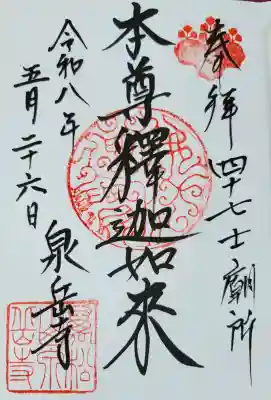 奉拝 四十七士廟所
本尊釋迦如來
令和八年
五月二十六日
泉岳寺